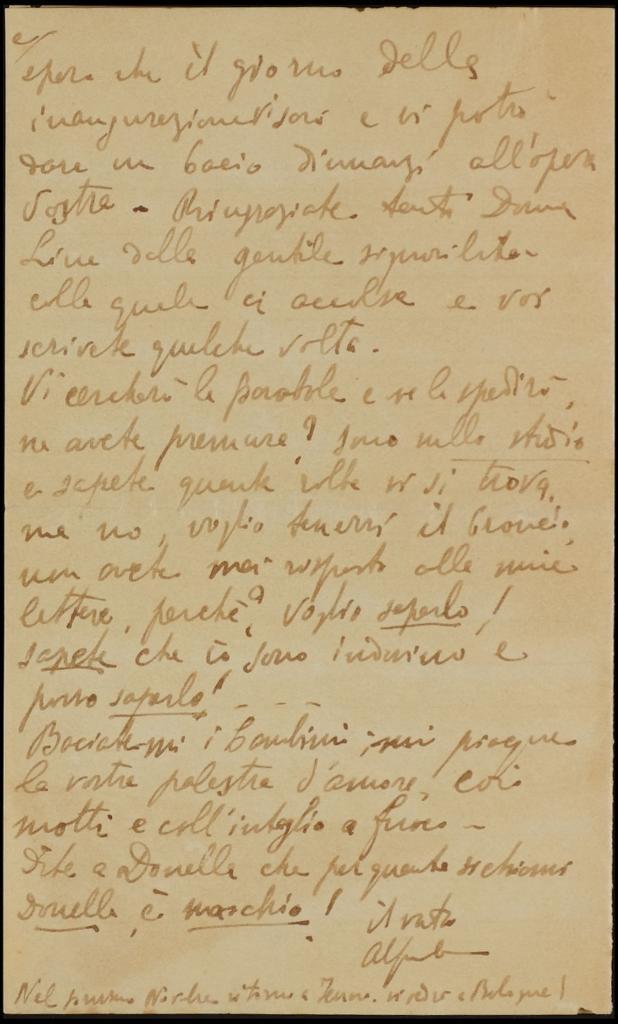 spero che il giorno della
inaugurazione vi sarò e vi potrò
dare un bacio dinnanzi all'opera
Vostra - Ringraziate tanto Donna
Lina della gentile signorilità
colla quale ci accolse e voi
scrivete qualche volta.
Vi cercherò le Parabole e ve le spedirò,
ne avete premura? Sono nello studio
e sapete quante volte vi si trova,
ma no, voglio tenervi il broncio,
non avete mai risposto alle mie
lettere, perchè? Voglio saperlo!
sapete che io sono indovino e
posso saperlo! - - -
Baciatemi i bambini; mi piacque
la vostra palestra d'amore, coi
motti e coll'intaglio a fuoco -
Dite a Donella che per quanto si chiami
Donella, è maschio!
il vostro
Nel ritorno a vi vedrò a Bologna!